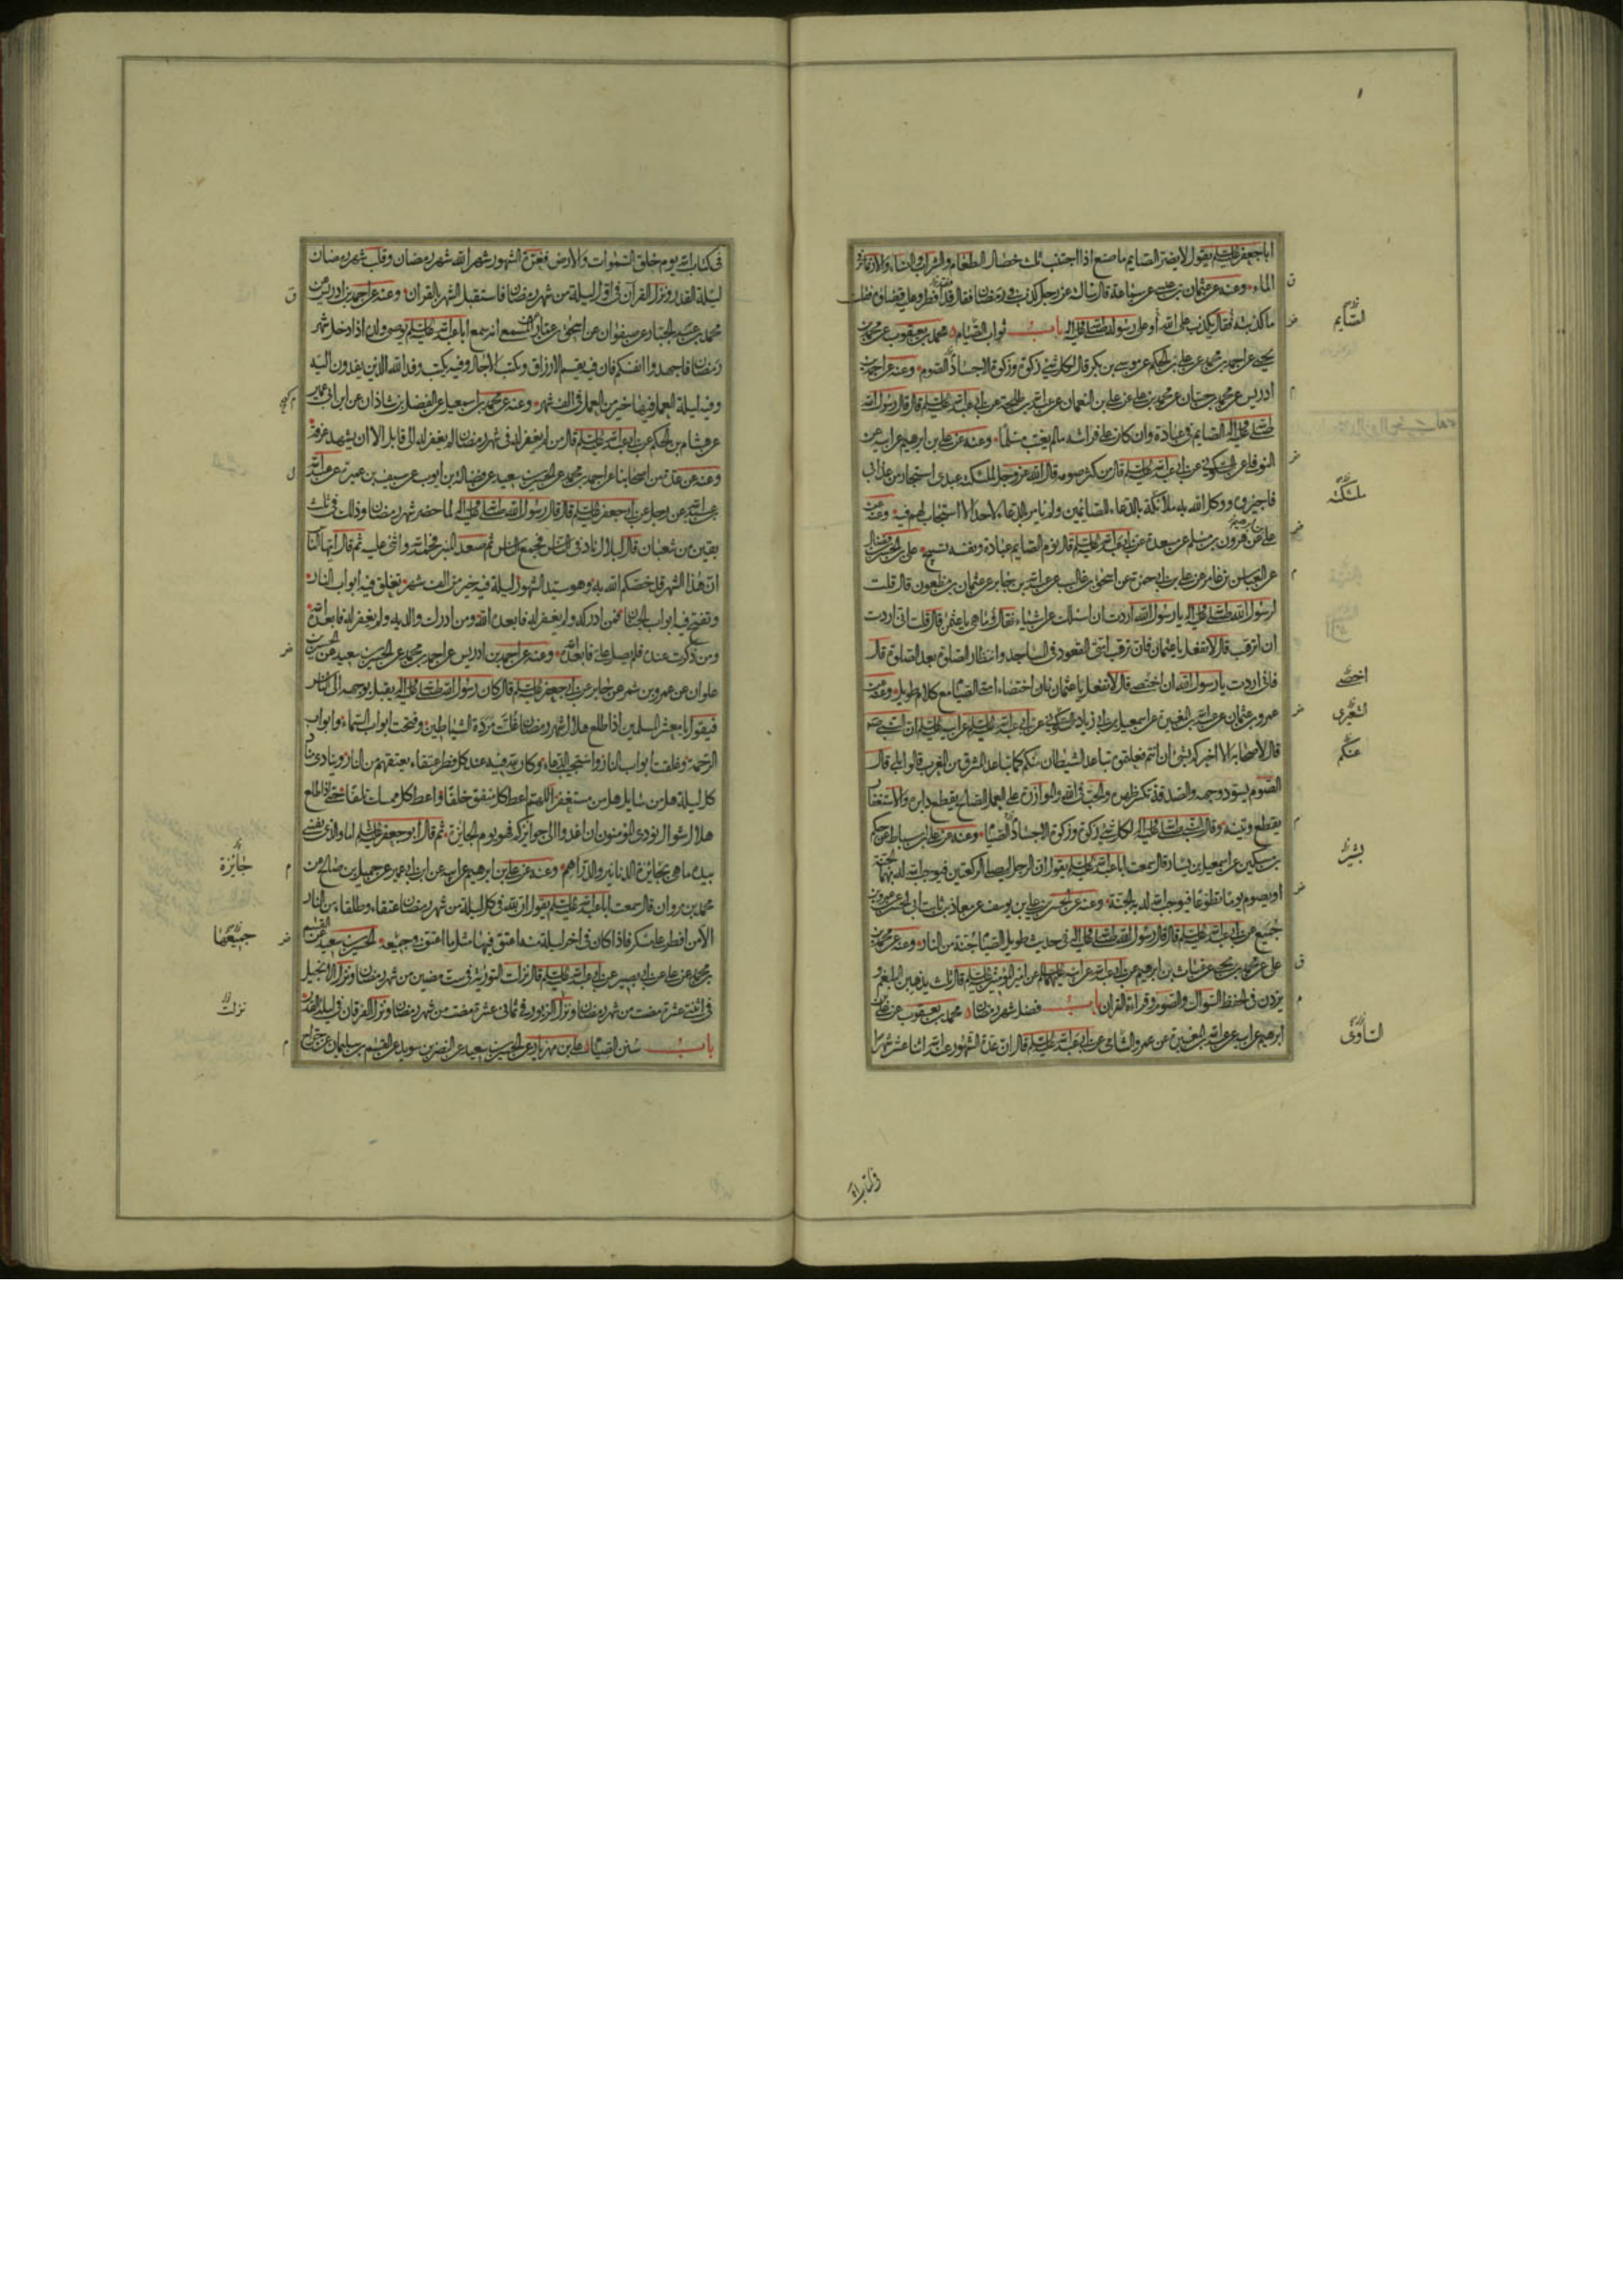 ابا جعفر عليه السلم يقول لا يضر الصايم ما صنع اذا اجتنب ثلث خصال الطعام والشراب والنساء والارتماس في
الماء وعنه عن عثمان بن عيسى عن سماعة قال سالته عن رجل كذب في رمضان فقال قد افطر وعليه قضاؤه فقلت
ما كذبته فقال يكذب على الله او على رسوله صلى الله عليه واله باب ثواب الصيام محمد بن يعقوب عن محمد بن
يحيى عن احمد بن محمد عن علي بن الحكم عن موسى بن بكر قال لكل شيء زكوة وزكوة الاجساد الصوم وعنه عن احمد بن
ادريس عن محمد بن حسان عن محمد بن علي عن علي بن النعمان عن عبد الله بن طلحة عن ابي عبد الله عليه السلم قال قال رسول الله
صلى الله عليه واله الصايم في عبادة وان كان على فراشه ما لم يغتب مسلما وعنه عن علي بن ابرهيم عن ابيه عن
النوفلي عن السكوني عن ابي عبد الله عليه السلم قال من كثر صومه قال الله عز وجل لملئكته عبدي استجار من عذابي
فاجيروه ووكل الله به ملائكة بالدعاء للصائمين ولم يامر بالدعاء لاحد الا استجاب لهم فيه وعنه عن
علي عن هرون بن مسلم عن مسعدة عن ابي عبد الله عليه السلم قال نوم الصايم عبادة ونفسه تسبيح علي بن الحسن بن فضال
عن العباس بن عامر عن علي بن ابي حمزة عن اسحق بن غالب عن عبد الله بن جابر عن عثمان بن مظعون قال قلت
لرسول الله صلى الله عليه واله يا رسول الله اردت ان اسئلك عن اشياء فقال وما هي يا عثمن قال قلت اني اردت
ان اترهب قال لا تفعل يا عثمان فان ترهب امتي القعود في المساجد وانتظار الصلوة بعد الصلوة قال
فاني اردت يا رسول الله ان اختصي قال لا تفعل يا عثمان فان اختصاء امتي الصيام مع كلام طويل وعنه عن
عمرو بن عثمان عن عبد الله بن المغيرة عن اسمعيل بن ابي زياد السكوني عن ابي عبد الله عليه السلم عن ابيه عليه السلم ان النبي صلعم
قال لاصحابه الا اخبركم بشيء ان انتم فعلتموه تباعد الشيطان منكم كما تباعد المشرق من المغرب قالوا بلى قال
الصوم يسود وجهه والصدقة تكسر ظهره والحب في الله والموازرة على العمل الصالح يقطع دابره والاستغفار
يقطع وتينه وقال النبي صلى الله عليه واله لكل شيء زكوة وزكوة الاجساد الصيام وعنه عن علي بن اسباط عن حكم
بن مسكين عن اسمعيل بن يسار قال سمعت ابا عبد الله عليه السلم يقول ان الرجل ليصلي الركعتين فيوجب الله له بهما الجنة
او يصوم يوما تطوعا فيوجب الله له به الجنة وعنه عن الحسن بن علي بن يوسف عن معاذ بن ثابت ابي الحسن عن عمرو بن
جميع عن ابي عبد الله عليه السلم قال قال رسول الله صلى الله عليه واله في حديث طويل الصيام جنة من النار وعنه عن محمد بن
علي عن محمد بن يحيى عن غياث بن ابرهيم عن ابي عبد الله عن ابيه عليهما السلم عن امير المؤمنين عليه السلم قال ثلث يذهبن البلغم و
يزدن في الحفظ السواك والصوم وقراءة القران باب فضل شهر رمضان محمد بن يعقوب عن علي بن
ابرهيم عن ابيه عن عبد الله بن المغيرة عن عمرو الشامي عن ابي عبد الله عليه السلم قال ان عدة الشهور عند الله اثنا عشر شهرا
الصايم
لملئكته
اختصي
المغيرة
منكم
يسار
السواك
في كتاب الله
في كتاب الله يوم خلق السموات والارض فغرة الشهور شهر الله شهر رمضان وقلب شهر رمضان
ليلة القدر ونزل القرآن في اول ليلة من شهر رمضان فاستقبل الشهر بالقران وعنه عن احمد بن ادريس عن
محمد بن عبد الجبار عن صفوان عن اسحق بن عمار عن المسمعي انه سمع ابا عبد الله عليه السلم يوصي ولده اذا دخل شهر
رمضان فاجهدوا انفسكم فان فيه يقسم الارزاق وتكتب الاجال وفيه يكتب وفد الله الذين يفدون اليه
وفيه ليلة العمل فيها خير من العمل في الف شهر وعنه عن محمد بن اسمعيل عن الفضل بن شاذان عن ابن ابي عمير
عن هشام بن الحكم عن ابي عبد الله عليه السلم قال من لم يغفر له في شهر رمضان لم يغفر له الى قابل الا ان يشهد عرفة
وعنه عن عدة من اصحابنا عن احمد بن محمد عن الحسين بن سعيد عن فضالة بن ايوب عن سيف بن عميرة عن عبد الله
بن عبد الله عن رجل عن ابي جعفر عليه السلم قال قال رسول الله صلى الله عليه واله لما حضر شهر رمضان وذلك في ثلث
بقين من شعبان قال لبلال ناد في الناس فجمع الناس ثم صعد المنبر فحمد الله واثنى عليه ثم قال ايها الناس
ان هذا الشهر قد خصكم الله به وهو سيد الشهور ليلة فيه خير من الف شهر تغلق فيه ابواب النار
وتفتح فيه ابواب الجنان فمن ادركه ولم يغفر له فابعده الله ومن ادرك والديه ولم يغفر له فابعده الله
ومن ذكرت عنده فلم يصل علي فابعده الله وعنه عن احمد بن ادريس عن احمد بن محمد عن الحسين بن سعيد عن الحسين بن
علوان عن عمرو بن شمر عن جابر عن ابي جعفر عليه السلم قال كان رسول الله صلى الله عليه واله يقبل بوجهه الى الناس
فيقول يا معشر المسلمين اذا طلع هلال شهر رمضان غلت مردة الشياطين وفتحت ابواب السماء وابواب
الرحمة وغلقت ابواب النار واستجيب الدعاء وكان لله فيه عند كل فطر عتقاء يعتقهم من النار وينادي مناد
كل ليلة هل من سايل هل من مستغفر اللهم اعط كل منفق خلفا واعط كل ممسك تلفا حتى اذا طلع
هلال شوال نودي المؤمنون ان اغدوا الى جوايزكم فهو يوم الجائزة ثم قال ابو جعفر عليه السلم اما والذي نفسي
بيده ما هي بجائزة الدنانير والدراهم وعنه عن علي بن ابرهيم عن ابيه عن ابن ابي عمير عن جميل بن صالح عن
محمد بن مروان قال سمعت ابا عبد الله عليه السلم يقول ان لله في كل ليلة من شهر رمضان عتقاء وطلقاء من النار
الا من افطر على مسكر فاذا كان في اخر ليلة منه اعتق فيها مثل ما اعتق في جميعه الحسين بن سعيد عن القسم
بن محمد عن علي عن ابي بصير عن ابي عبد الله عليه السلم قال نزلت التورية في ست مضين من شهر رمضان ونزل الانجيل
في اثنتي عشرة مضت من شهر رمضان ونزل الزبور في ثماني عشرة مضت من شهر رمضان ونزل الفرقان في ليلة القدر
باب سنن الصيام علي بن مهزيار عن الحسين بن سعيد عن النضر بن سويد عن القسم بن سليمان عن جراح
جائزة
جميعها
نزلت